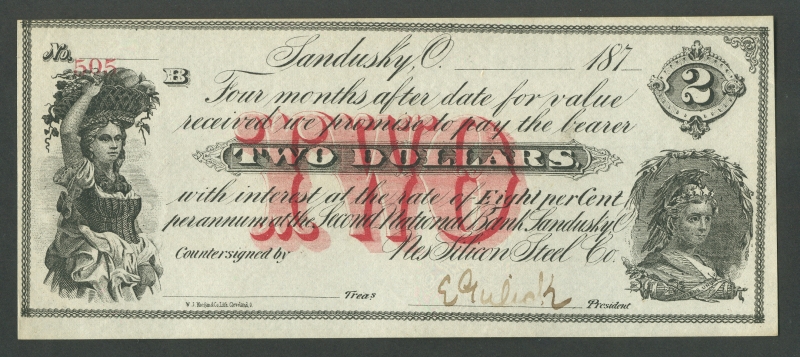 No. 595 Sandusky, O. 187
B 2
Four months after date for value
received we promise to pay the bearer
TWO
TWO DOLLARS,
with interest at the rate of Eight per Cent
per annum at the Second National Bank Sandusky O
Countersigned by Nes Silicon Steel Co.
Treas E Gulick President